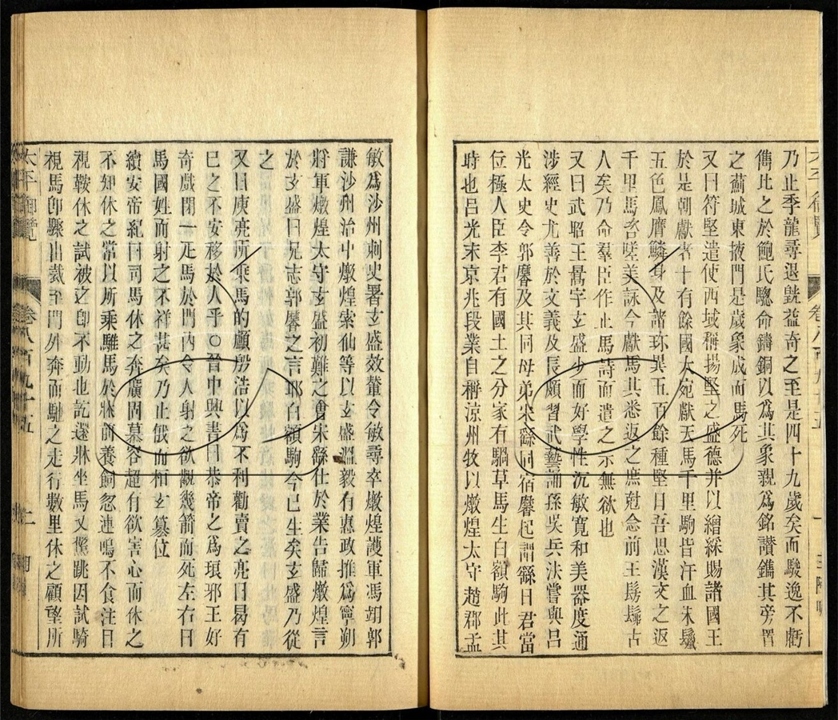 太平御覽 卷八百九十五
乃止季龍尋退皝益奇之至是四十九歲矣而駿逸不虧
儁比之於鮑氏驄命鑄銅以爲其象親爲銘讚鐫其旁置
之薊城東掖門是歲象成而馬死
又曰符堅遣使西域稱揚堅之盛德并以繒綵賜諸國王
於是朝獻者十有餘國大宛獻天馬千里駒皆汗血朱鬣
五色鳳膺麟身及諸珍異五百餘種堅曰吾思漢文之返
千里馬咨嗟美詠今獻馬其悉返之庶尅念前王髣髴古
人矣乃命羣臣作止馬詩而遣之示無欲也
又曰武昭王暠字玄盛少而好學性沉敏寬和美器度通
涉經史尤善於文義及長頗習武藝誦孫吳兵法嘗與呂
光太史令郭黁及其同母弟宋繇同宿黁起謂繇曰君當
位極人臣李君有國土之分家有騧草馬生白額駒此其
時也呂光末京兆段業自稱涼州牧以燉煌太守趙郡孟
敏爲沙州刺史署玄盛效轂令敏尋卒燉煌護軍馮翊郭
謙沙州治中燉煌索仙等以玄盛溫毅有惠政推爲寧朔
將軍燉煌太守玄盛初難之會宋繇仕於業告歸燉煌言
於玄盛曰兄忘郭黁之言耶白額駒今已生矣玄盛乃從
之
又曰庾亮所乘馬的顱殷浩以爲不利勸賣之亮曰曷有
己之不安移於人乎○晉中興書曰恭帝之爲琅邪王好
奇戲閉一疋馬於門內令人射之欲觀幾箭而死左右曰
馬國姓而射之不祥甚矣乃止俄而桓玄篡位
續安帝紀曰司馬休之奔廣固慕容超有欲害心而休之
不知休之常以所乘騅馬於牀前養飼忽連鳴不食注目
視鞍休之試被之卽不動也訖還牀坐馬又驚跳因試騎
視馬卽驟出裁至門外奔而馳之走行數里休之顧望所
太平御覽 卷八百九十五 二